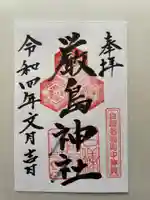 奉拝
厳島神社
令和四年文月吉日